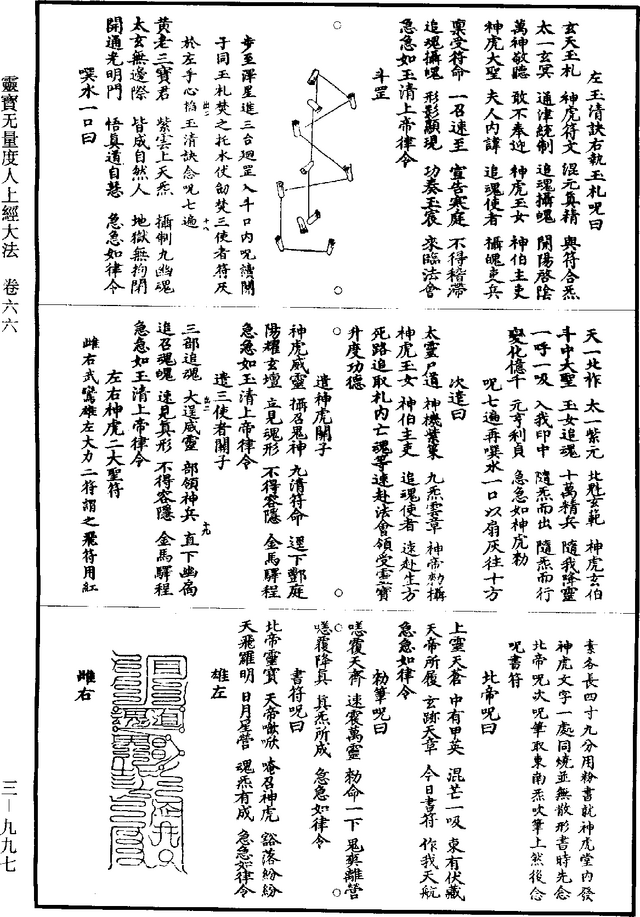 左玉清訣右執玉札呪曰
玄天玉札　神虎符文　混元真精　與符合炁
太一玄冥　通津統制　追魂攝魄　開陽啓陰
萬神敬聽　敢不奉迎　神虎玉女　神伯主吏
神虎大聖　夫人內諱　追魂使者　攝魄吏兵
稟受符命　一召速至　宣告寒庭　不得稽滯
追魂攝魄　形影顯現　功奏玉宸　來臨法會
急急如玉清上帝律令
斗罡
步至澤星進三台迴罡入斗口內呪讀關
子同玉札焚之托水仗劒焚三使者符灰
於左手心掐玉清訣念呪七遍
黃老三寶君　紫雲上天炁　攝制九幽魂
太玄無邊際　皆成自然人　地獄無拘閉
開通光明門　悟真道自慧　急急如律令
噀水一口曰
靈寶无量度人上經大法　卷六六
天一北祚　太一紫元　北魁玄範　神虎玄伯
斗中大聖　玉女追魂　十萬精兵　隨我除靈
一呼一吸　入我印中　隨炁而出　隨炁而行
變化億千　元亨利貞　急急如神虎勑
呪七遍再噀水一口以扇灰往十方
次遣曰
太靈尸道　神機紫策　九炁雲章　神帝勑攝
神虎玉女　神伯主吏　追魂使者　速赴生方
死路追取札內亡魂等速赴法會領受靈寶
升度功德
遣神虎關子
神虎威靈　攝召鬼神　九清符命　遝下酆庭
陽耀玄壇　立見魂形　不得容隱　金馬驛程
急急如玉清上帝律令
遣三使者關子
三部追魂　大逞威靈　部領神兵　直下幽扃
追召魂魄　速見真形　不得容隱　金馬驛程
急急如玉清上帝律令
左右神虎二大聖符
雌右武鸞雄左大力二符謂之飛符用紅
素各長四十九分用粉書就神虎堂內發
神虎文字一處同燒並無散形書時先念
北帝呪次呪筆取東南炁吹筆上然後念
呪書符
北帝呪曰
上靈天蒼　中有甲英　混芒一吸　東有伏藏
天帝所履　玄跡天章　今日書符　作我天航
急急如律令
勑筆呪曰
嘻覆天齋　速震萬靈　勑命一下　鬼爽離營
嘻覆降真　真炁所成　急急如律令
書符呪曰
北帝靈寶　天帝歘欻　唵召神虎　豁落紛紛
天飛羅明　日月星營　魂炁有成　急急如律令
雄左
雌右
三—九九七